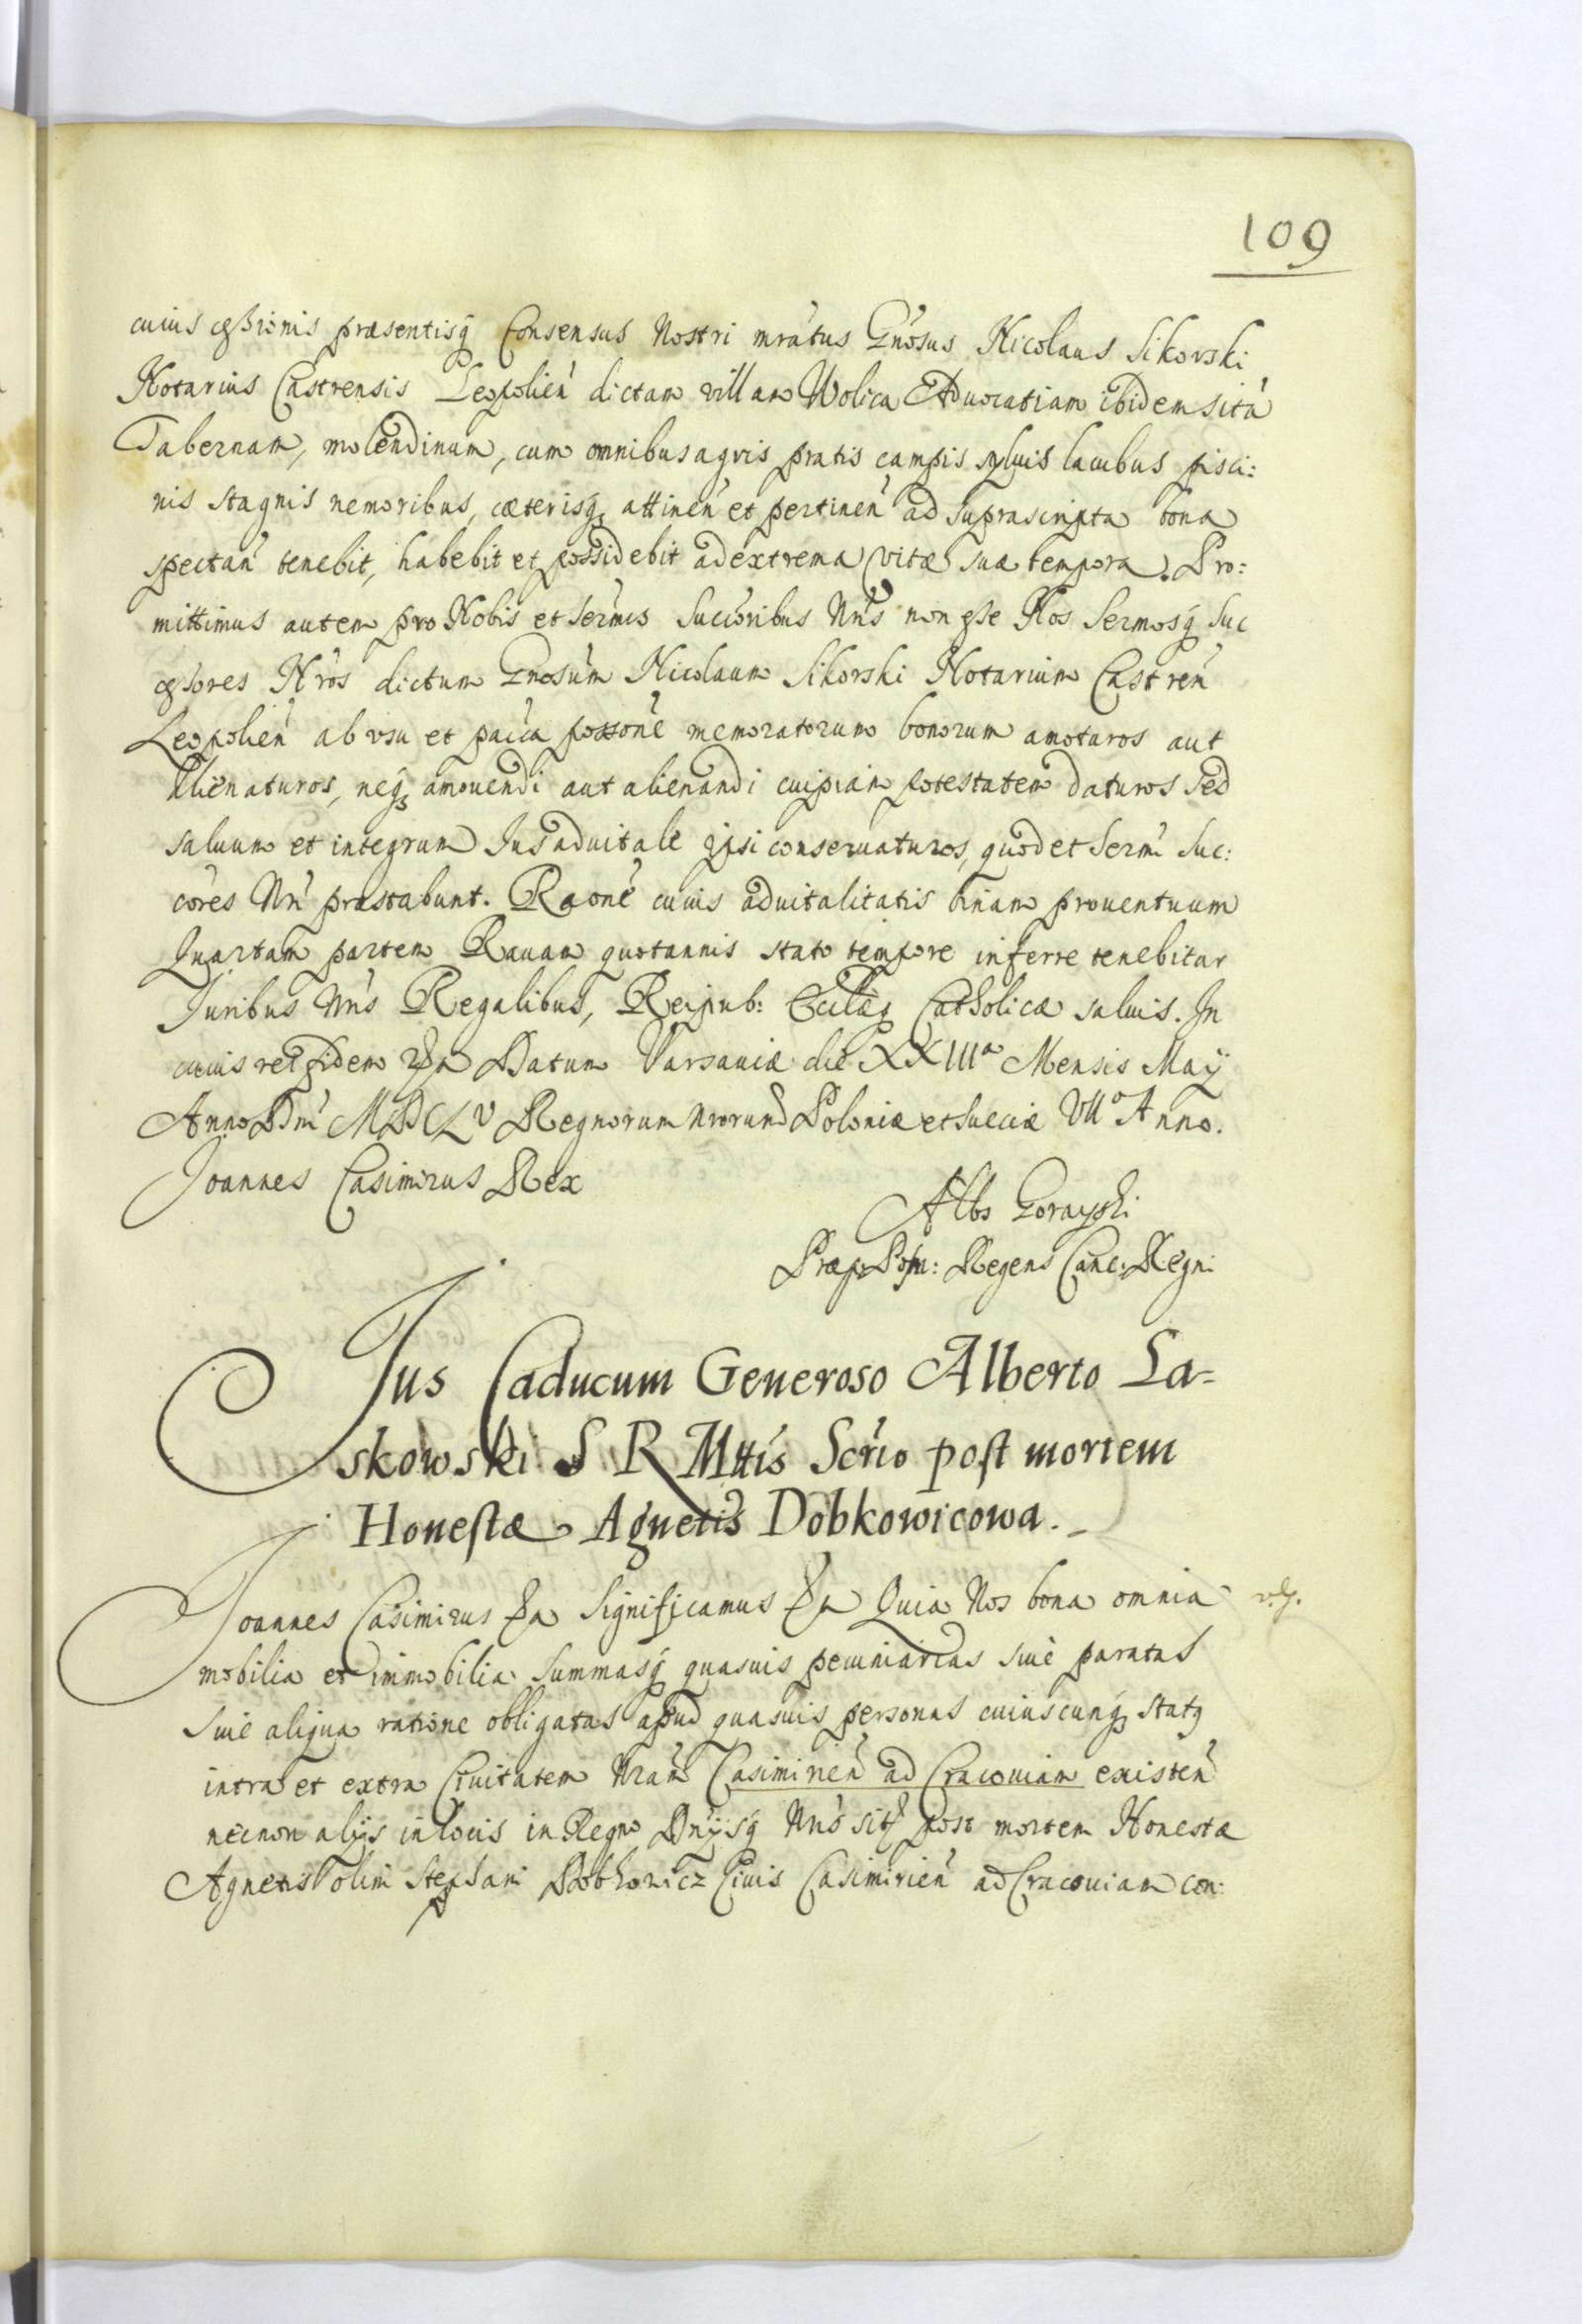 109
cuius cessionis præsentisq Consensus Nostri mratus Gnosus Nicolaus Sikorski
Notarius Castrensis Leopolien dictam villam Wolica Aduocatiam ibidem sitã
Tabernam, molendinum, cum omnibus agris pratis campis syluis lacubus pisci:
nis stagnis nemoribus, cæterisq attinen et pertinen ad suprascripta bona
spectan tenebit, habebit et possidebit ad extrema vitæ suæ tempora. Pro:
mittimus autem pro Nobis et Sermis Succoribus Nris non esse Nos Sermosq Suc
cessores Nros dictum Gnosum Nicolaum Sikorski Notarium Castren
Leopolien ab vsu et pacca possone memoratorum bonorum amoturos aut
alienaturos, neq amouendi aut alienandi cuipiam potestatem daturos sed
saluum et integrum Jus aduitale ipsi conseruaturos, quod et Sermi Suc:
cores Nri præstabunt. Raone cuius aduitalitatis binam prouentuum
Quartam partem Rauam quotannis stato tempore inferre tenebitur
Juribus Nris Regalibus, Reipub: Ecclæq Catholicæ saluis. In
cuius rei fidem &a Datum Varsauiæ die XXIIIa Mensis Maÿ
Anno Dni MDCLV Regnorum Nrorum Poloniæ et Sueciæ VIIo Anno.
Joannes Casimirus Rex
Albs Gorayski
Præp: Posn: Regens Canc: Regni
Jus Caducum Generoso Alberto La=
skowski S R Mttis Scrio post mortem
Honestæ Agnetis Dobkowicowa.
Joannes Casimirus &a Significamus &a Quia Nos bona omnia
mobilia et immobilia Summasq quasuis pecuniarias siue paratas
siue aliqua ratione obligatas apud quasuis personas cuiuscunq status
intra et extra Ciuitatem Nram Casimirien ad Cracouiam existen
necnon alÿs in locis in Regno Dnÿsq Nris sit post mortem Honestæ
Agnetis olim Stephani Dobkowicz Ciuis Casimirien ad Cracouiam con: